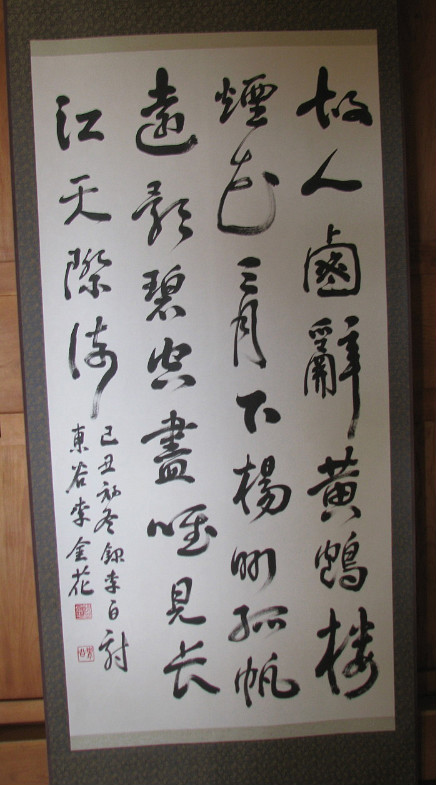 故人鹵辭黄鶴楼
煙花三月下楊州孤帆
遠影碧空盡唯見长
江天際流
己丑初冬録李白詩
東谷李金花